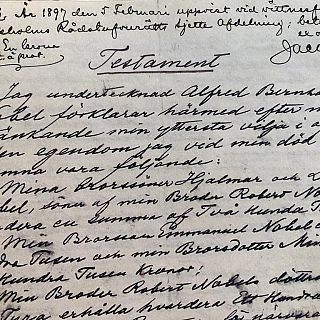 År 1897 den 5 Februari uppvist vid vittnesf
Rådstufvurätts sjette Afdelning; bet
En krona
Testament
Jag undertecknad Alfred Bernha
bel förklarar härmed efter m
änkande min yttersta vilja i a
en egendom jag vid min död
mna vara följande:
Mina Brorsöner Hjalmar och L
bel, söner af min Broder Robert No
dera en summa af Två Hundra T
Min Brorson Emmanuel Nobel
dra Tusen och min Brorsdotter Min
Hundra Tusen Kronor;
Min Broder Robert Nobels döttra
Tyra erhålla hvardera Ett Hundra